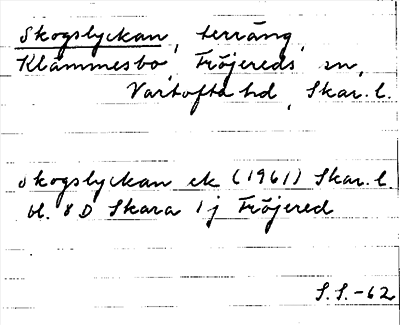 Skogslyckan, terräng,
Klämmesbo, Fröjereds sn,
Vartofta hd, Skar. l.
Skogslyckan ek (1961) Skar. l.
bl. 8 D Skara 1 j Fröjered
S.S.-62